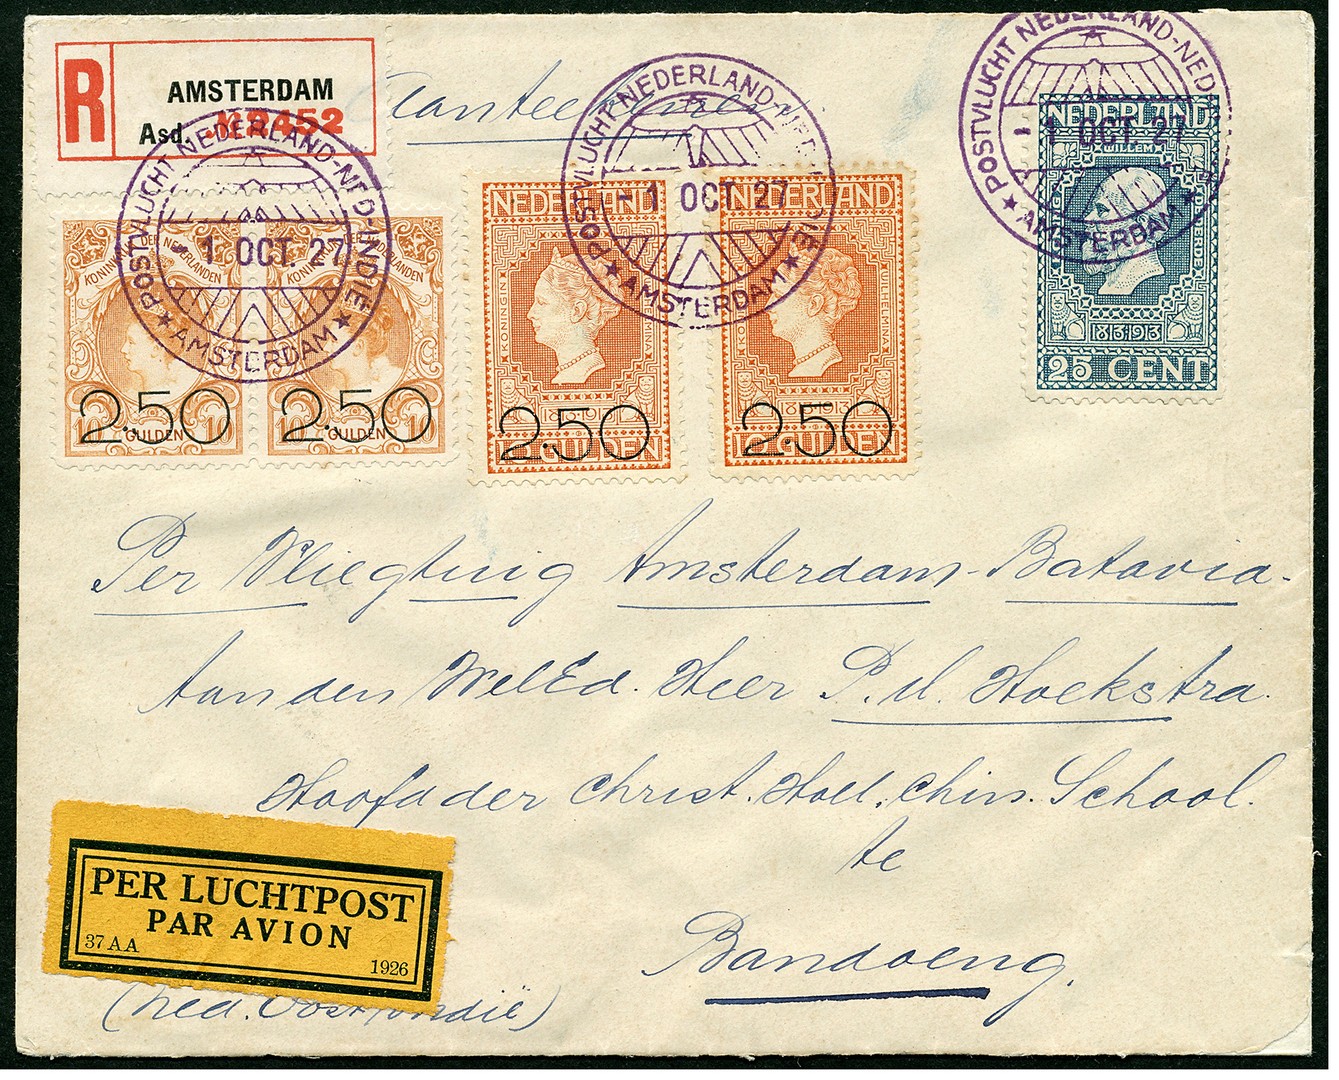 R
AMSTERDAM
Asd.
Aanteekenen
POSTVLUCHT NEDERLAND-NED-INDIE
1 OCT. 27
★ AMSTERDAM ★
POSTVLUCHT NEDERLAND-NED-INDIE
1 OCT 27
★ AMSTERDAM ★
POSTVLUCHT NEDERLAND-NED
1 OCT. 27
★ AMSTERDAM ★
KONINGIN DER NEDERLANDEN
2.50
10 GULDEN 10
KONINGIN NEDERLANDEN
2.50
10 GULDEN 10
NEDERLAND
KONINGIN WILHELMINA
1813-1913
2.50
10 GULDEN
NEDERLAND
WILHELMINA
1813-1913
2.50
10 GULDEN
NEDERLAND
WILLEM
1813-1913
25 CENT
Per Vliegting Amsterdam-Batavia-
Aan den WelEd. Heer P.d. Hoekstra.
Hoofd der Christ. Holl. Chin. School.
te
Bandoeng.
(Ned. Oost Indië)
PER LUCHTPOST
PAR AVION
37 AA
1926